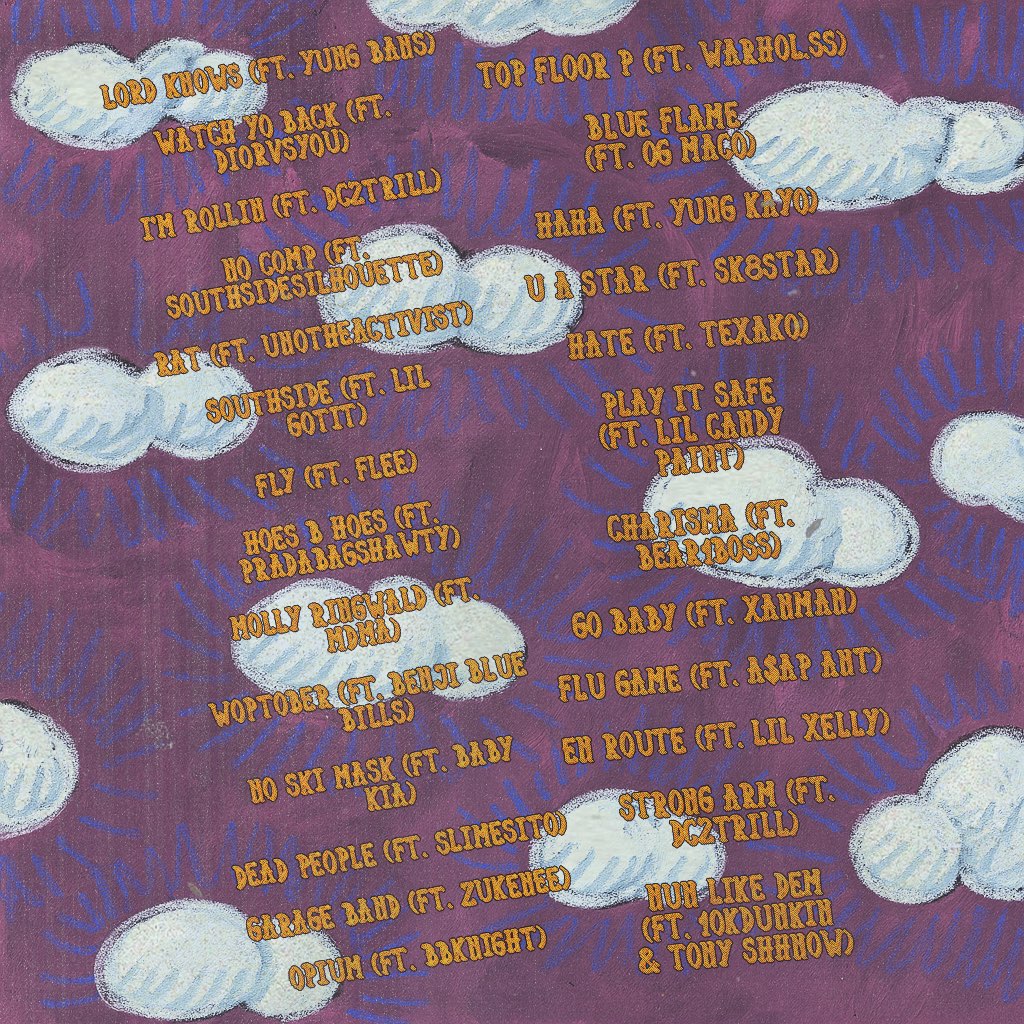 LORD KNOWS (FT. YUNG BANS)
WATCH YO BACK (FT.
DIORVSYOU)
I'M ROLLIN (FT. DC2TRILL)
NO COMP (FT.
SOUTHSIDESILHOUETTE)
RAT (FT. UNOTHEACTIVIST)
SOUTHSIDE (FT. LIL
GOTIT)
FLY (FT. FLEE)
HOES B HOES (FT.
PRADABAGSHAWTY)
MOLLY RINGWALD (FT.
MDMA)
WOPTOBER (FT. BENJI BLUE
BILLS)
NO SKI MASK (FT. BABY
KIA)
DEAD PEOPLE (FT. SLIMESITO)
GARAGE BAND (FT. ZUKENEE)
OPIUM (FT. BBKNIGHT)
TOP FLOOR P (FT. WARHOL.SS)
BLUE FLAME
(FT. OG MACO)
HAHA (FT. YUNG KAYO)
U A STAR (FT. SK8STAR)
HATE (FT. TEXAKO)
PLAY IT SAFE
(FT. LIL CANDY
PAINT)
CHARISMA (FT.
BEAR1BOSS)
GO BABY (FT. XANMAN)
FLU GAME (FT. A$AP ANT)
EN ROUTE (FT. LIL XELLY)
STRONG ARM (FT.
DC2TRILL)
NUN LIKE DEM
(FT. 10KDUNKIN
& TONY SHHNOW)